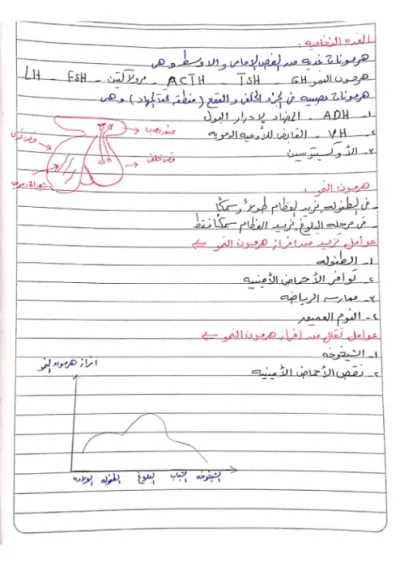 الغدة النخامية :
هرمونات غدية من الفص الامامي والاوسط وهي
هرمون النمو GH - TSH - ACTH - برولاكتين - FSH - LH
هرمونات عصبية في الجزء الخلفي والقمع (منطقة تحت المهاد) وهي
١- ADH - المضاد لإدرار البول
٢- VH - القابض للأوعية الدموية
٣- الأوكسيتوسين
فص خلفي
هرمون النمو :
- في الطفولة تزيد العظام طولاً وسمكًا
- في مرحلة البلوغ تزيد العظام سمكًا فقط
عوامل تزيد من افراز هرمون النمو
١- الطفولة
٢- توافر الأحماض الأمينية
٣- ممارسة الرياضة
٤- النوم العميق
عوامل تقلل من افراز هرمون النمو
١- الشيخوخة
٢- نقص الأحماض الأمينية
افراز هرمون النمو
الولادة الطفولة البلوغ الشباب الشيخوخة